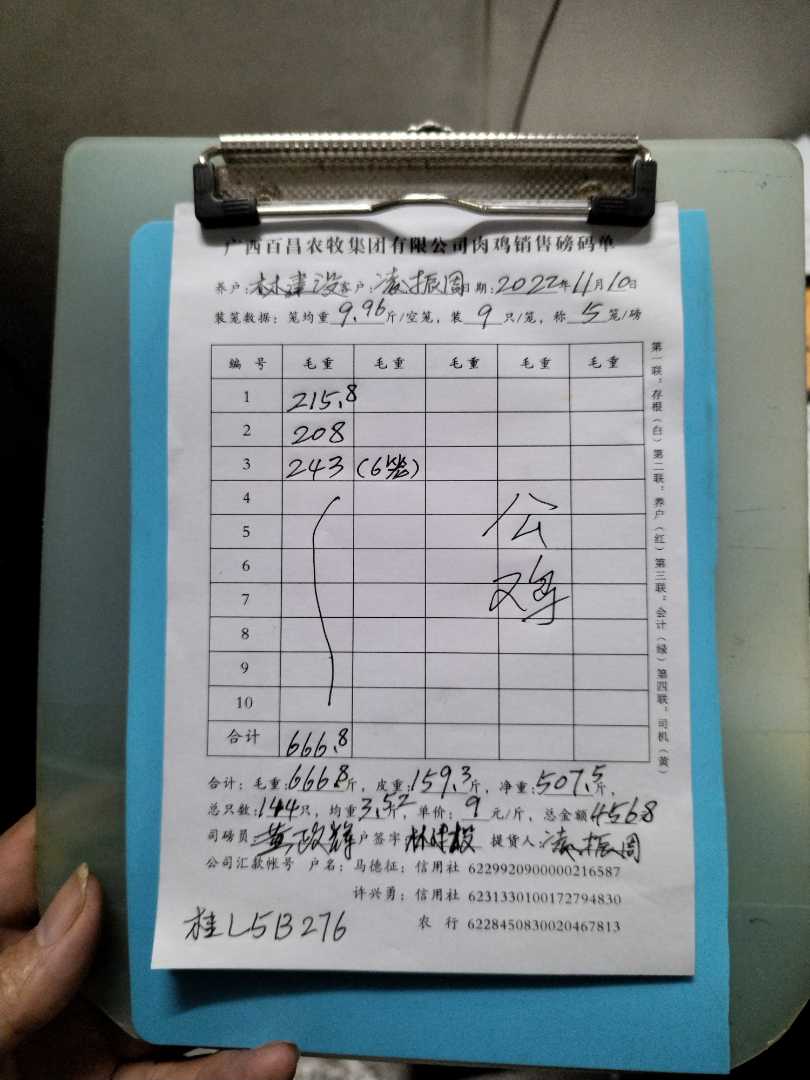 广西百昌农牧集团有限公司肉鸡销售磅码单
养户:林建设客户:凌振周日期:2022年11月10日
装笼数据:笼均重9.96斤/空笼,装9只/笼,称5笼/磅
编 号 毛重 毛重 毛重 毛重 毛重
1 215.8
2 208
3 243 (6笼)
4
5
6
7
8
9
10
公鸡
合计 666.8
合计:毛重:666.8斤,皮重:159.3斤,净重:507.5斤,
总只数:144只,均重3.52斤,单价:9元/斤,总金额4568
司磅员 黄政辉 户签字 提货人:凌振周
公司汇款帐号 户名:马德征:信用社 6229920900000216587
许兴勇:信用社 6231330100172794830
农 行 6228450830020467813
桂L5B276
第一联:存根(白)第二联:养户(红)第三联:会计(绿)第四联:司机(黄)